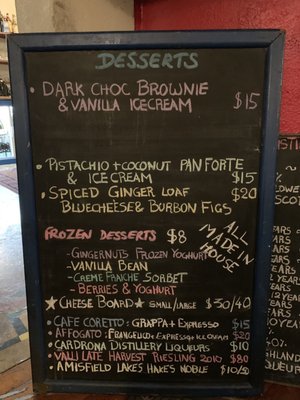 DESSERTS
• DARK CHOC BROWNIE
& VANILLA ICECREAM $15
• PISTACHIO + COCONUT PAN FORTE
& ICE CREAM $15
• SPICED GINGER LOAF $20
BLUECHEESE & BURBON FIGS
FROZEN DESSERTS $8
- GINGERNUTS FROZEN YOGHURT
- VANILLA BEAN
- CREME FRAICHE SORBET
- BERRIES & YOGHURT
ALL
MADE IN
HOUSE
★ CHEESE BOARD ★ SMALL/LARGE $30/40
• CAFE CORETTO: GRAPPA + ESPRESSO $15
• AFFOGATO: FRANGELICO + ESPRESSO + ICE CREAM $20
• CARDRONA DISTILLERY LIQUEURS $10
• VALLI LATE HARVEST RIESLING 2010 $80
• AMISFIELD LAKES HAYES NOBLE $10/50